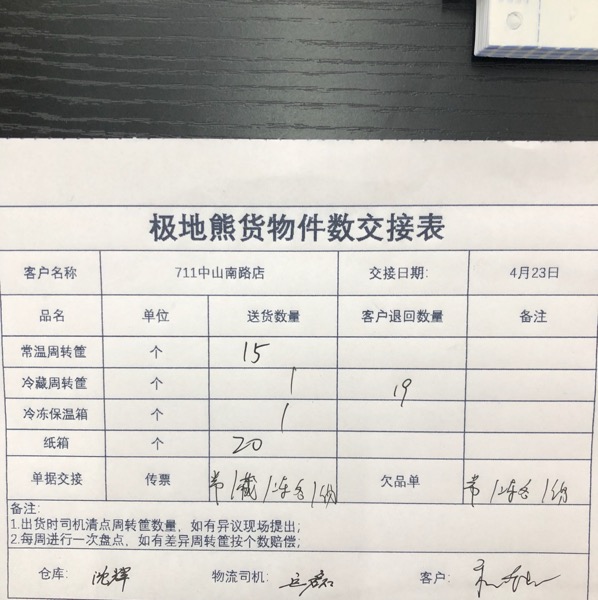 极地熊货物件数交接表
客户名称 711中山南路店 交接日期: 4月23日
品名 单位 送货数量 客户退回数量 备注
常温周转筐 个 15
冷藏周转筐 个 1 19
冷冻保温箱 个 1
纸箱 个 20
单据交接 传票 常1藏1冻各1份 欠品单 常1冻各1份
备注:
1.出货时司机清点周转筐数量，如有异议现场提出;
2.每周进行一次盘点，如有差异周转筐按个数赔偿;
仓库: 沈辉 物流司机: 客户: